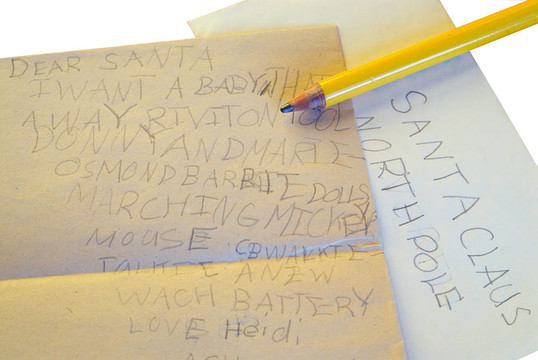 DEAR SANTA
I WANT A BABY THAT
AWAY RIVITON TOOL
DONNY AND MARIE
OSMOND BARBIE DOLLS
MARCHING MICKEY
MOUSE CB WALKIE
TALKIE A NEW
WACH BATTERY
LOVE Heidi
SANTA CLAUS
NORTH POLE